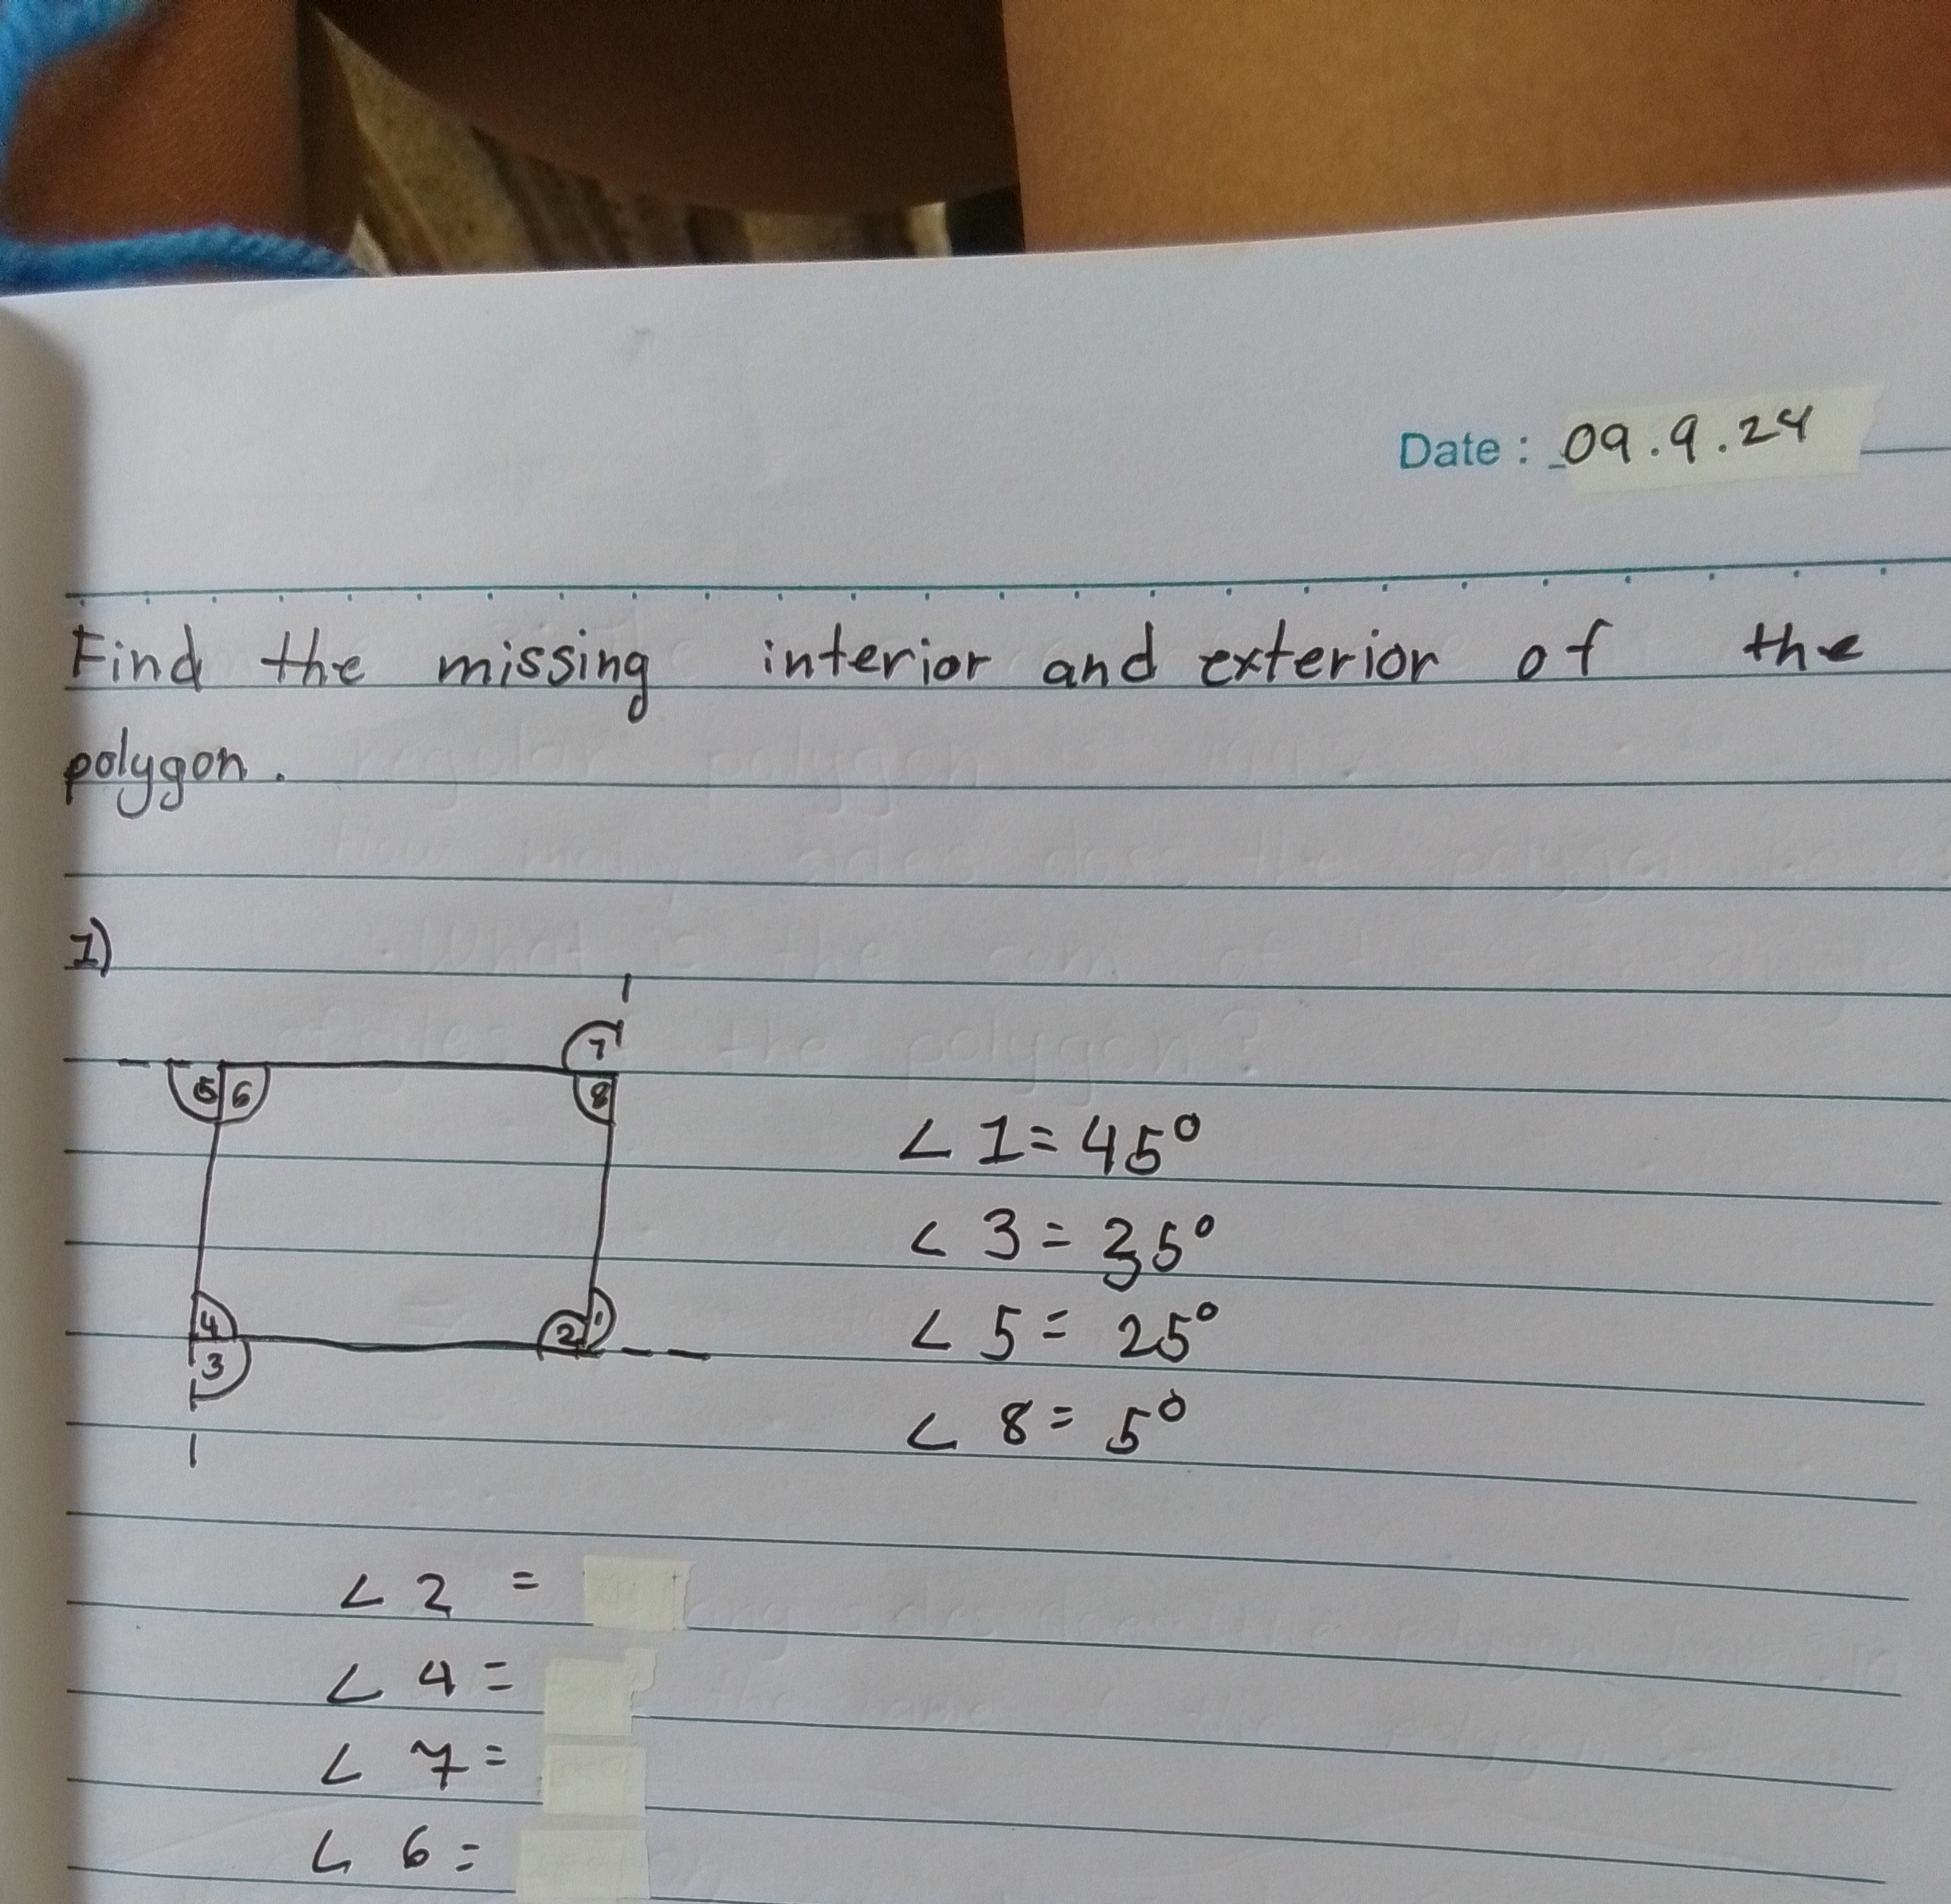 Date : 09.9.24
Find the missing interior and exterior of the
polygon.
1)
7
5 6 8
∠ 1 = 45°
∠ 3 = 35°
∠ 5 = 25°
4 2 1
3
∠ 8 = 5°
∠ 2 =
∠ 4 =
∠ 7 =
∠ 6 =